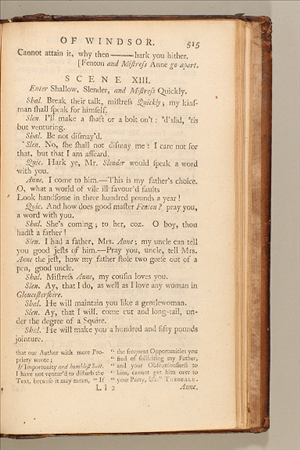 OF WINDSOR. 515
Cannot attain it, why then——hark you hither.
[Fenton and Miſtreſs Anne go apart.
SCENE XIII.
Enter Shallow, Slender, and Miſtreſs Quickly.
Shal. Break their talk, miſtreſs Quickly; my kinſ-
man ſhall ſpeak for himſelf.
Slen. I'll make a ſhaft or a bolt on't: 'd'slid, 'tis
but venturing.
Shal. Be not diſmay'd.
Slen. No, ſhe ſhall not diſmay me: I care not for
that, but that I am afeard.
Quic. Hark ye, Mr. Slender would ſpeak a word
with you.
Anne. I come to him.—This is my father's choice.
O, what a world of vile ill-favour'd faults
Look handſome in three hundred pounds a year!
Quic. And how does good maſter Fenton? pray you,
a word with you.
Shal. She's coming; to her, coz. O boy, thou
hadſt a father!
Slen. I had a father, Mrs. Anne; my uncle can tell
you good jeſts of him.—Pray you, uncle, tell Mrs.
Anne the jeſt, how my father ſtole two geeſe out of a
pen, good uncle.
Shal. Miſtreſs Anne, my couſin loves you.
Slen. Ay, that I do, as well as I love any woman in
Gloceſterſhire.
Shal. He will maintain you like a gentlewoman.
Slen. Ay, that I will, come cut and long-tail, un-
der the degree of a Squire.
Shal. He will make you a hundred and fifty pounds
jointure.
that our Author with more Pro-
priety wrote;
If Importunity and humbleſt Suit.
I have not ventur'd to diſturb the
Text, becauſe it may mean, "If
" the frequent Opportunities you
" find of ſolliciting my Father,
" and your Obſequiouſneſs to
" him, cannot get him over to
" your Party, &c." THEOBALD.
L l 2 Anne.